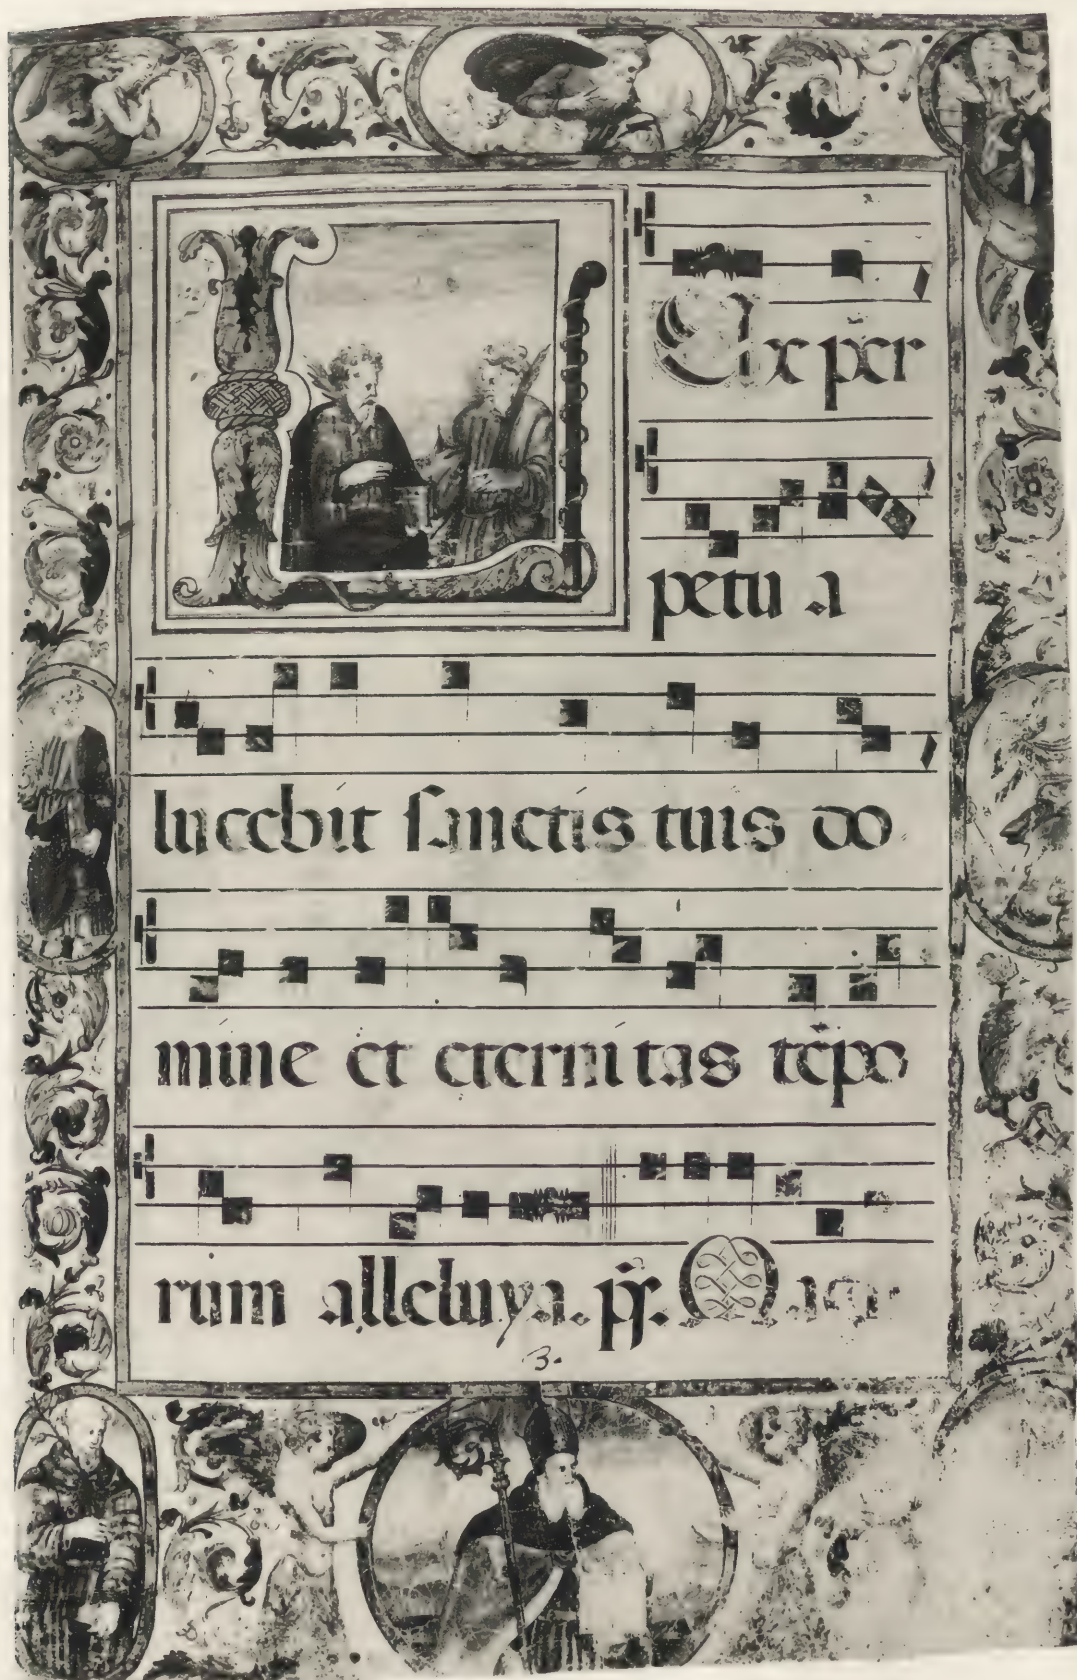 LUx per
petu a
lucebit ſanctis tuis do
mine et eterni tas tēpo
rum alleluya. ps.
3.